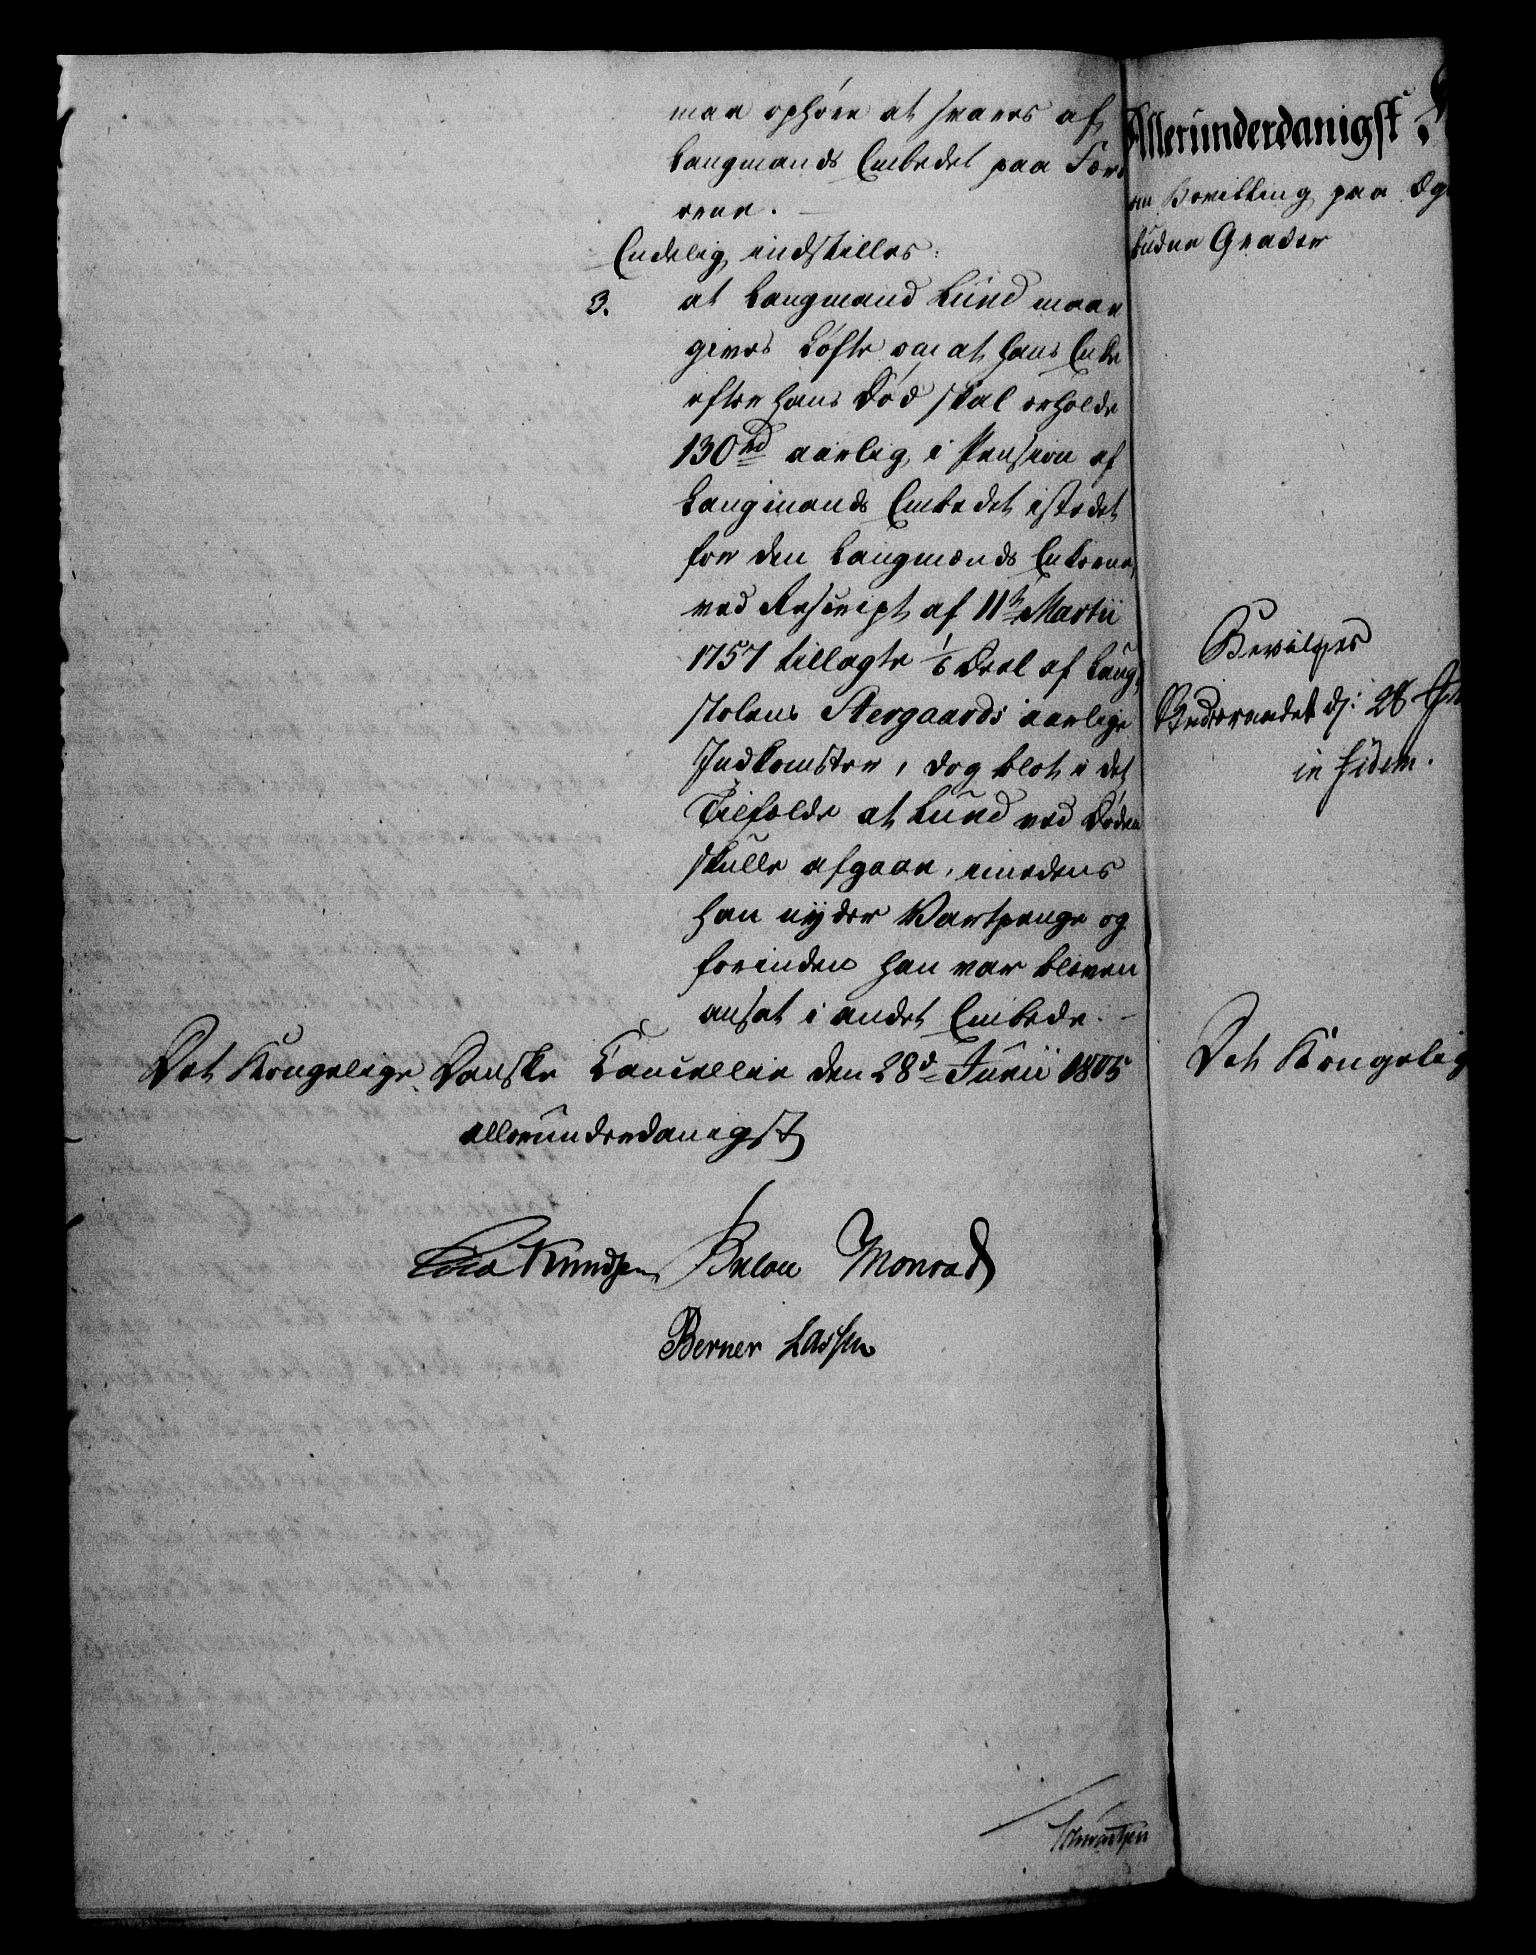 maa ophøre at svares af
Laugmands Embedet paa Færø
erne.
Endelig indstilles:
3. at Laugmand Lund maae
gives Løfte om at hans Enke
efter hans Død skal erholde
130 rd aarlig i Pension af
Laugmands Embedet istedet
for den Laugmænds Enkerne
ved Rescript af 11te Martii
1757 tillagte 1/6 Deel af Laug
stolens Steegaards aarlige
Indkomster, dog blot i det
Tilfælde at Lund ved Døden
skulle afgaae, imedens
han nyder Vartpenge og
forinden han var bleven
ansat i andet Embede.
Det Kongelige Danske Cancellie den 28d Junii 1805
allerunderdanigst
Knudsen Bülow Monrad
Berner Lassen
Allerunderdanigst
en Bevilling paa Ægt
budne Grader
Bevilges
d: 28
in fidem.
Det Kongelig